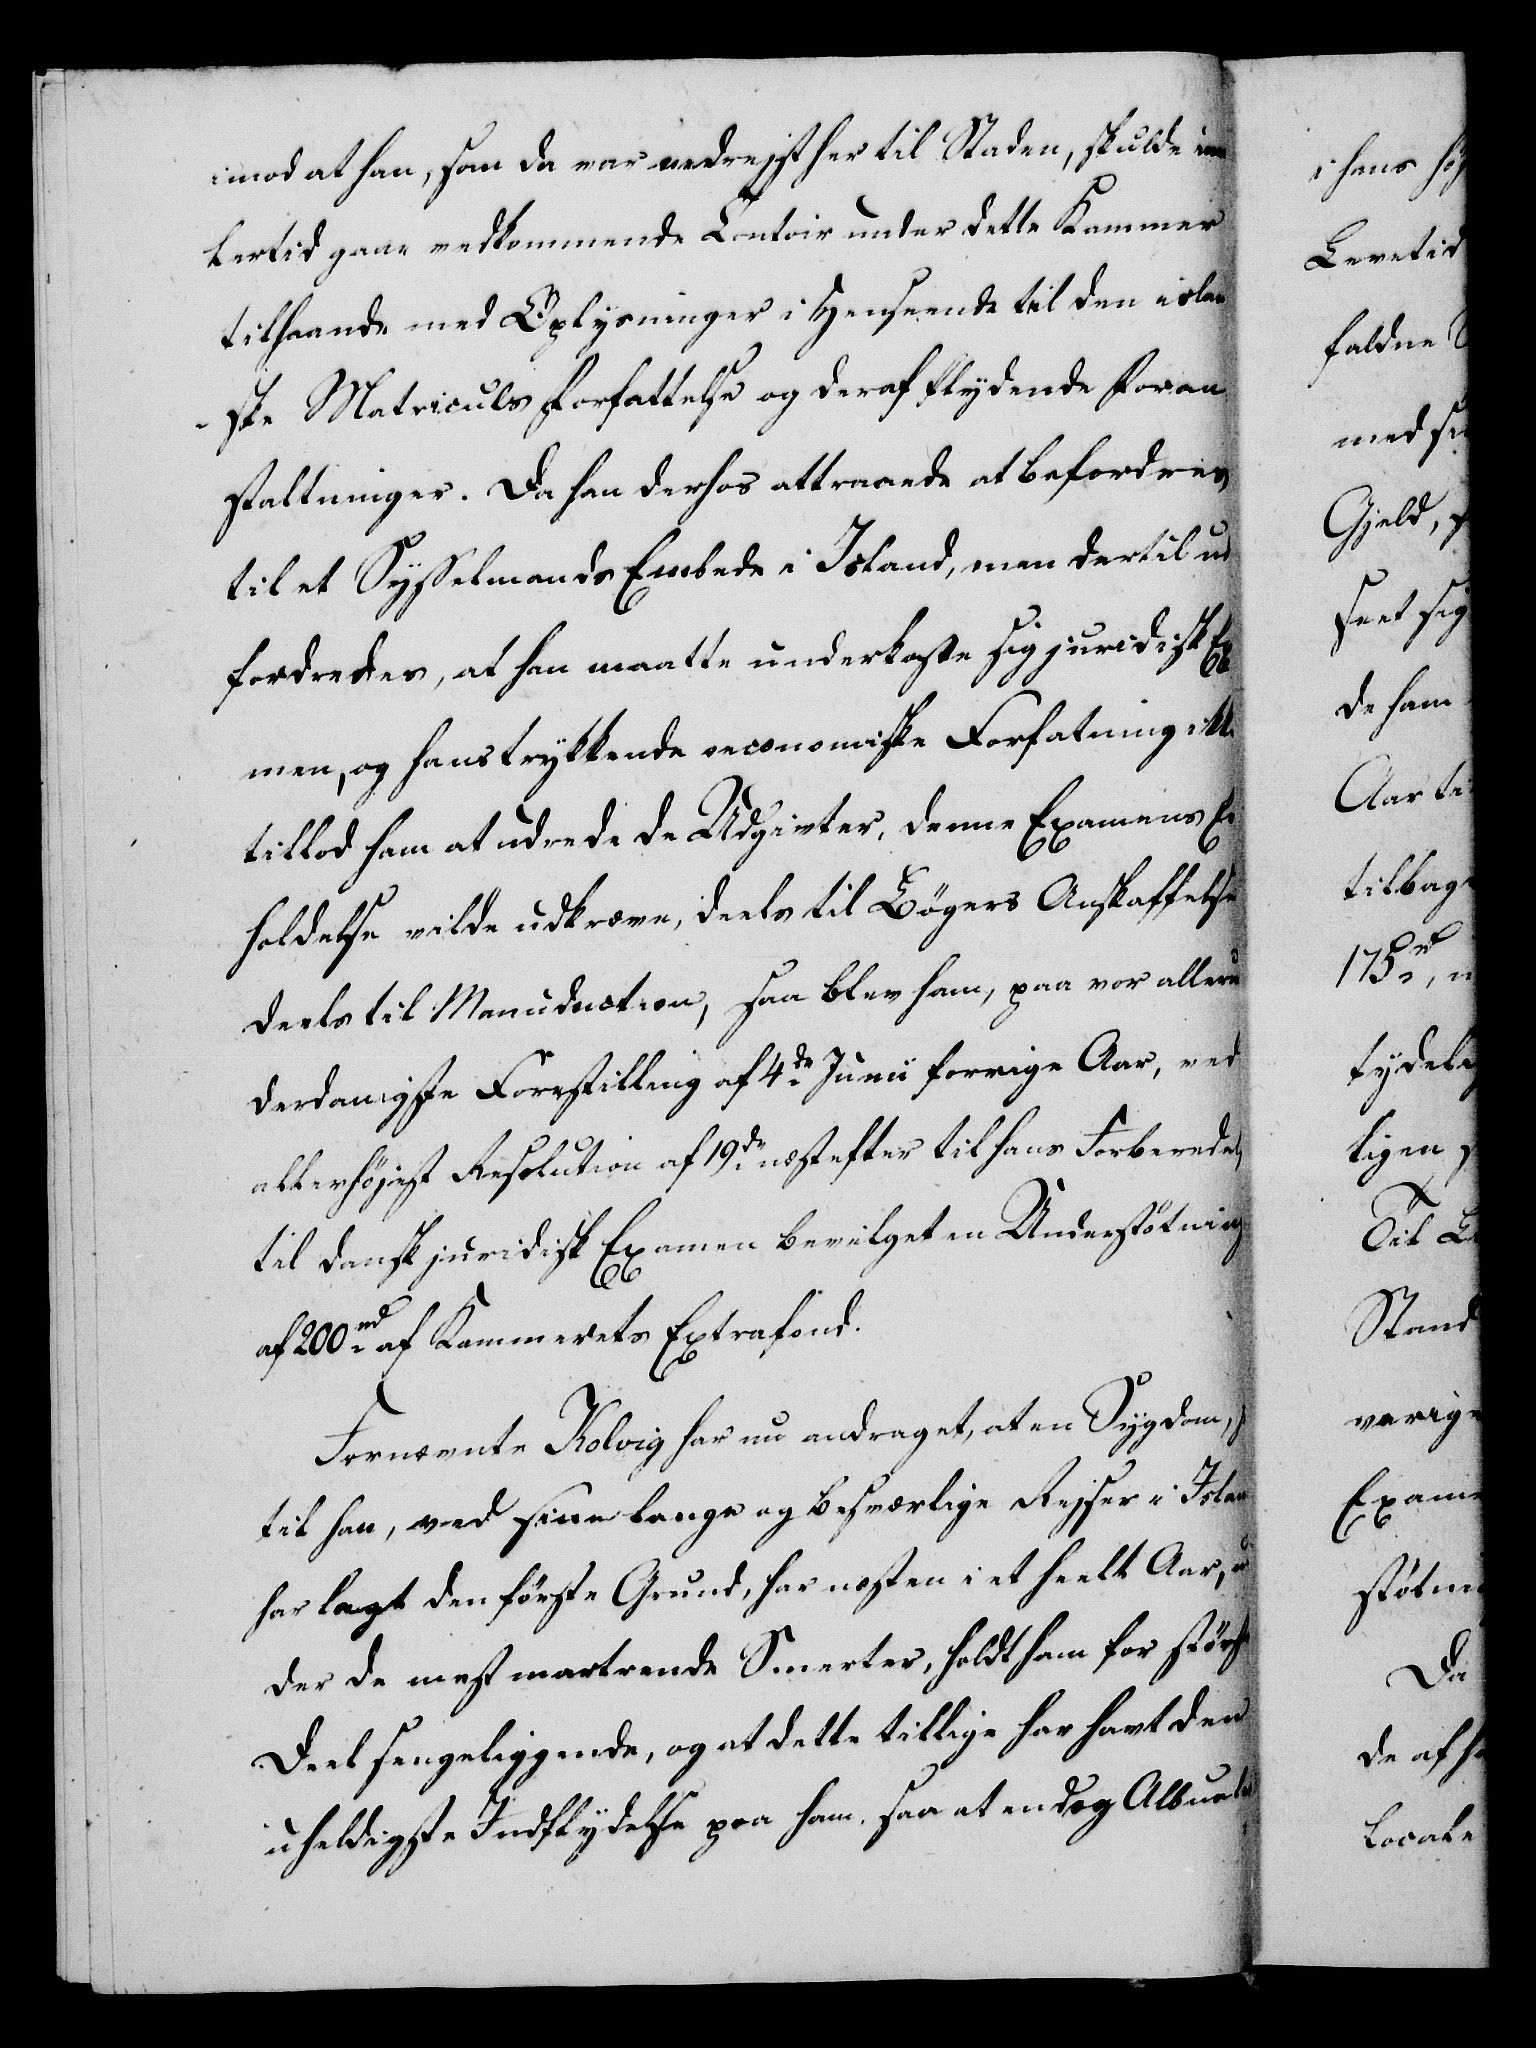 imod at han, som da var nedrejst her til Staden, skulde im
lertid gaae vedkommende Contoir under dette Kammer
tilhaande med Oplysninger i Henseende til den islan
ske Matriculs Forfattelse og deraf flydende Foran
staltninger. Da han derhos attraaede at befordres
til et Sysselmands Embede i Island, men dertil ud
fordredes, at han maatte underkaste sig juridisk Ex
men, og hans trykkende oeconomiske Forfatning ikke
tillod ham at udrede de Udgivter, denne Examens Er
holdelse vilde udkræve, deels til Bögers Anskaffelse
deels til Manuduction, saa blev ham, paa vor alleru
derdanigste Forestilling af 4de Junii forrige Aar, ved
allerhöjest Resolution af 19de næstefter til hans Forberedel
til dansk juridisk Examen bevilget en Understötning
af 200 rd af Kammerets Extrafond.
Fornævnte Kolvig har nu andraget, at en Sygdom,
til han, ved sine lange og besværlige Rejser i Islan
har lagt den förste Grund, har næsten i et heelt Aar, u
der de mest martrende Smerter, holdt ham for störst
Deel sengeliggende, og at dette tillige har havt den
uheldigste Indflydelse paa ham, saa at endog Albue
i hans höj
Levetid
faldne
med si
Gjeld,
seet sig
de ham
Aar ti
tilbage
175 rd,
tydelig
ligen
Til
Stand
varige
Exame
stötni
Da
de af h
locale